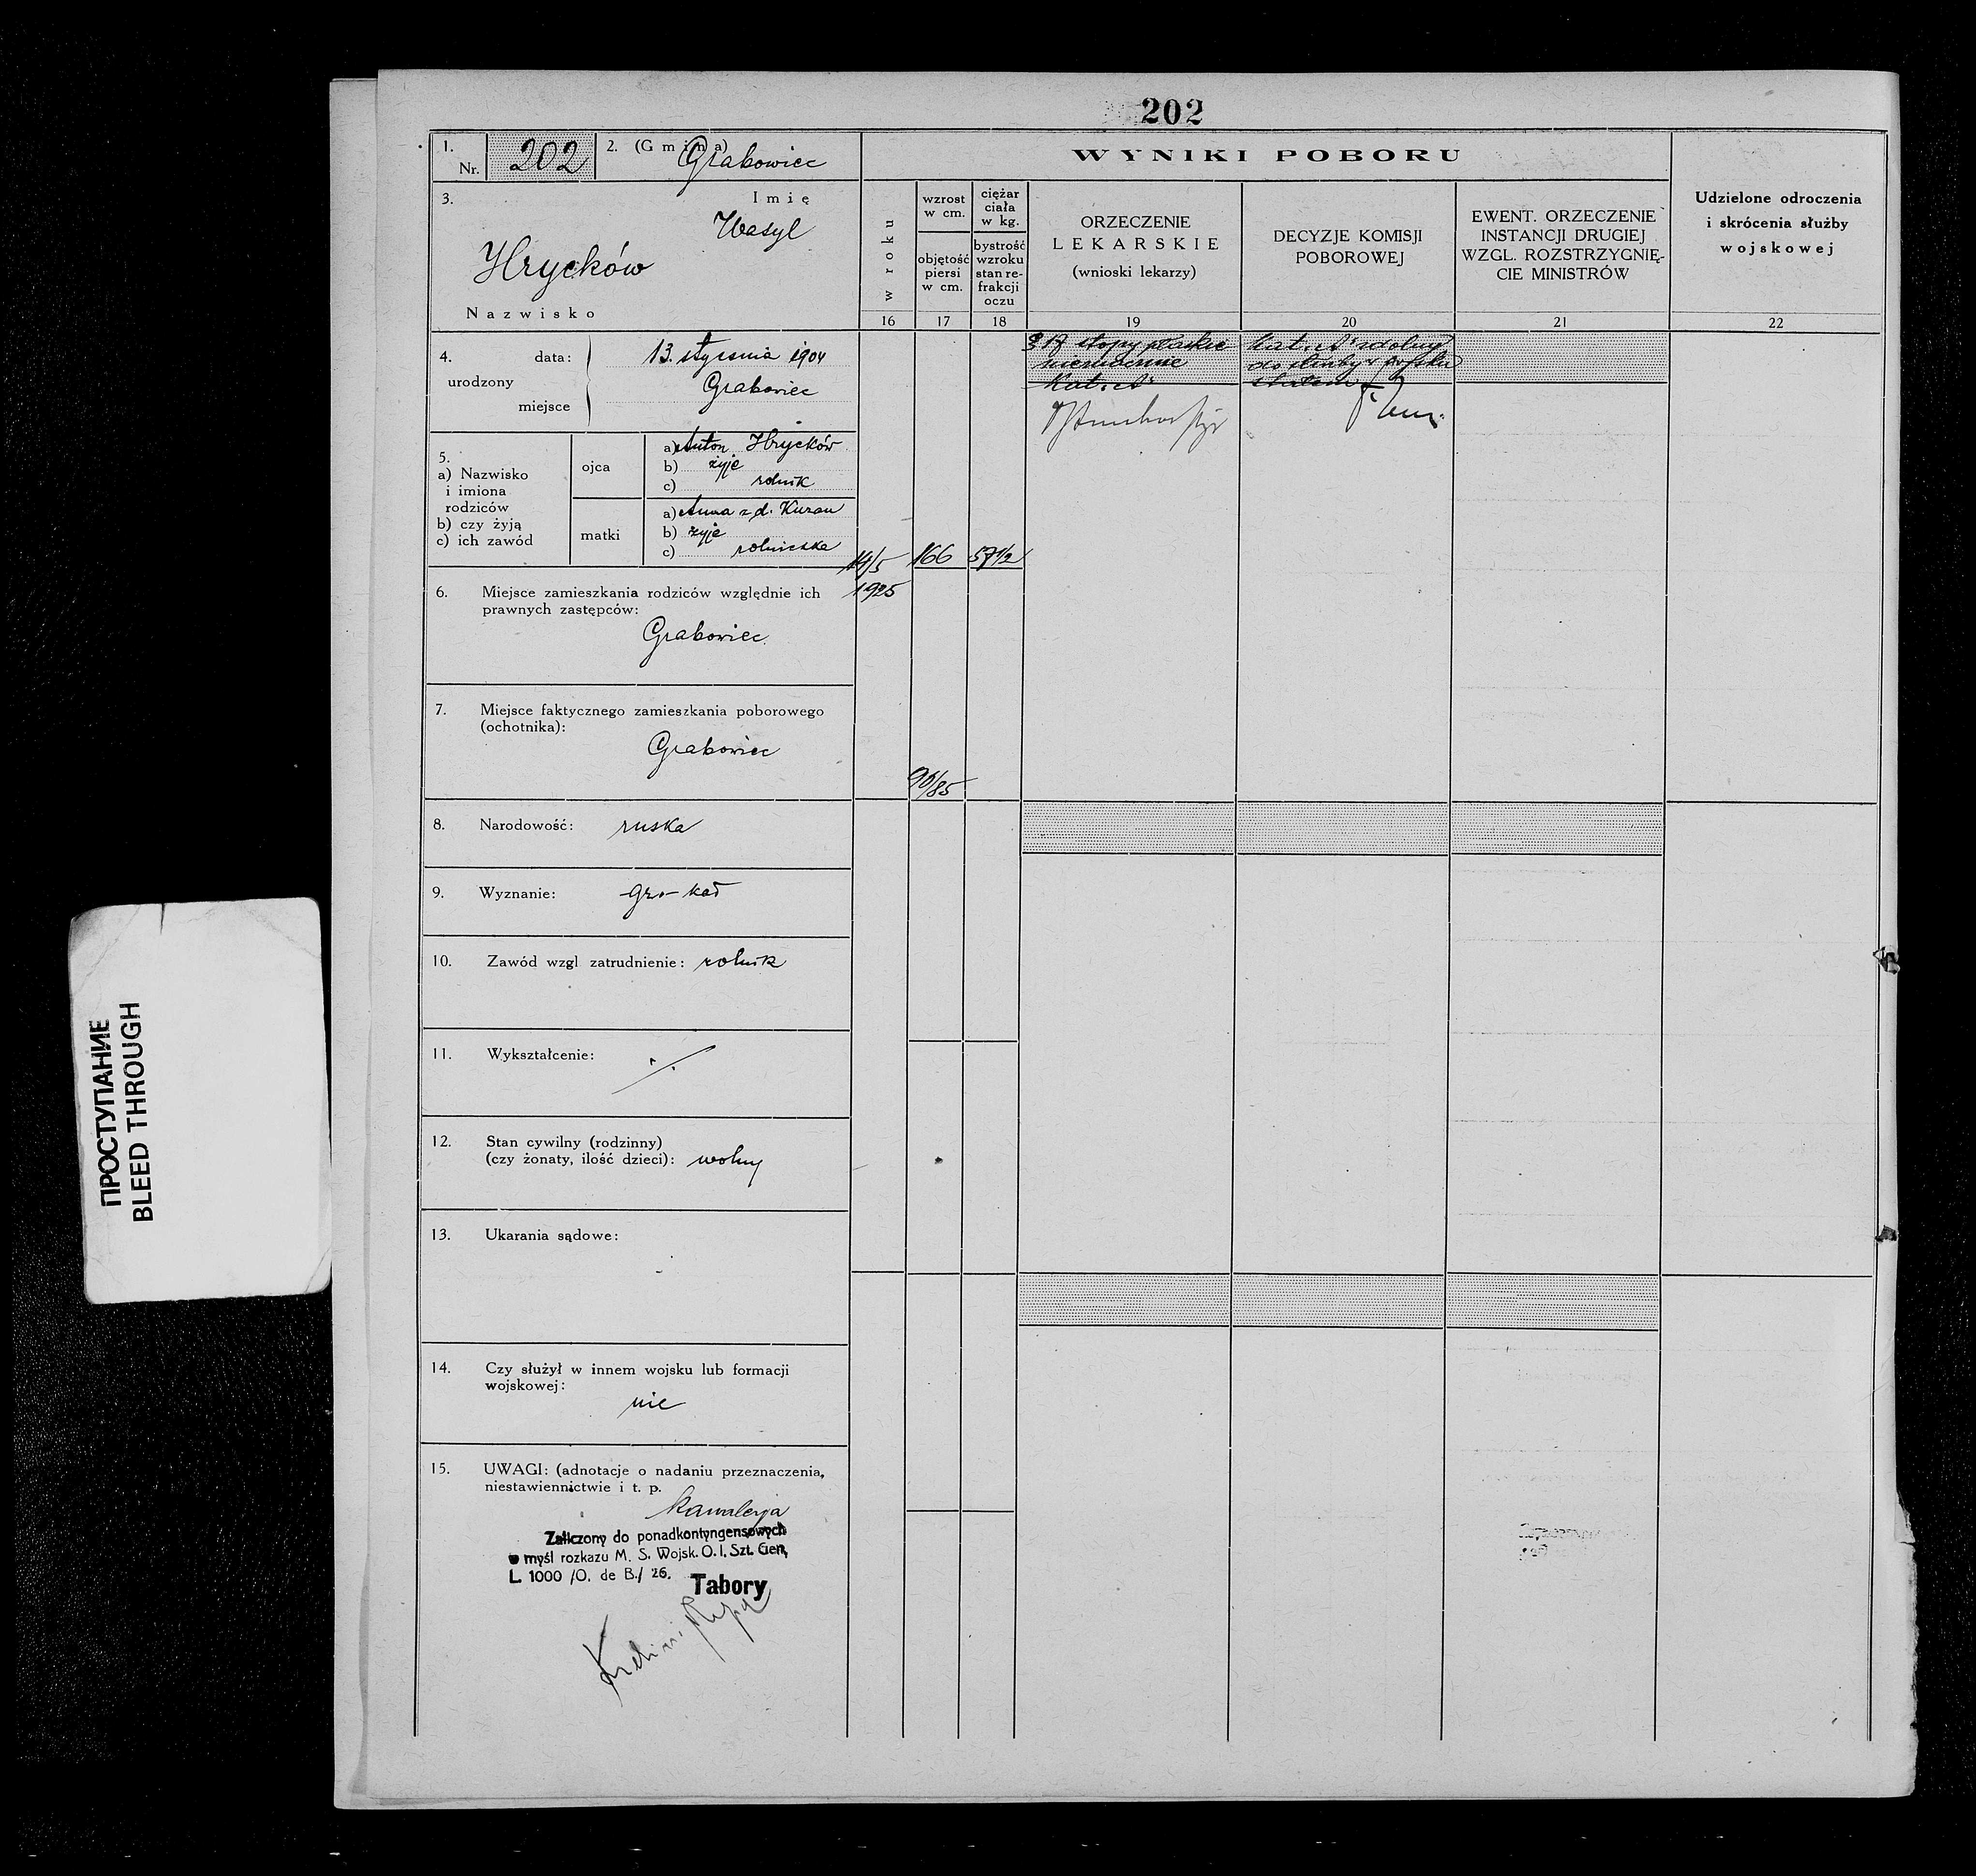 202
1.
Nr. 202
2. (Gmina) Grabowiec
3.
Imię
Wasyl
Hryckόw
Nazwisko
4.
urodzony
data: 13. stycznia 1904
miejsce
Grabowiec
5.
a) Nazwisko
i imiona
rodziców
b) czy żyją
c) ich zawód
ojca
a) Anton Hryckόw
b) żyje
c) rolnik
matki
a) Anna z d. Kuzan
b) żyje
c) rolniczka
6. Miejsce zamieszkania rodziców względnie ich
prawnych zastępców:
Grabowiec
7. Miejsce faktycznego zamieszkania poborowego
(ochotnika):
Grabowiec
8. Narodowość: ruska
9. Wyznanie: gr-kat
10. Zawód wzgl zatrudnienie: rolnik
11. Wykształcenie: ./.
12. Stan cywilny (rodzinny)
(czy żonaty, ilość dzieci): wolny
13. Ukarania sądowe:
14. Czy służył w innem wojsku lub formacji
wojskowej:
nie
15. UWAGI: (adnotacje o nadaniu przeznaczenia,
niestawiennictwie i t. p.
kawalerja
Zaliczony do ponadkontyngensowych
w myśl rozkazu M. S. Wojsk. O. I. Szt. Gen.
L. 1000 /O. de B./ 26.
Tabory
WYNIKI POBORU
w roku
wzrost
w cm.
objętość
piersi
w cm.
ciężar
ciała
w kg.
bystrość
wzroku
stan re-
frakcji
oczu
ORZECZENIE
LEKARSKIE
(wnioski lekarzy)
DECYZJE KOMISJI
POBOROWEJ
EWENT. ORZECZENIE
INSTANCJI DRUGIEJ
WZGL. ROZSTRZYGNIĘ-
CIE MINISTRÓW
Udzielone odroczenia
i skrócenia służby
wojskowej
16 17 18 19 20 21 22
14/5
1925
166
57 1/2
90/85
stopy płaskie
Kat. A
Kat. A zdolny
do służby w wojsku
stałem
ПРОСТУПАНИЕ
BLEED THROUGH